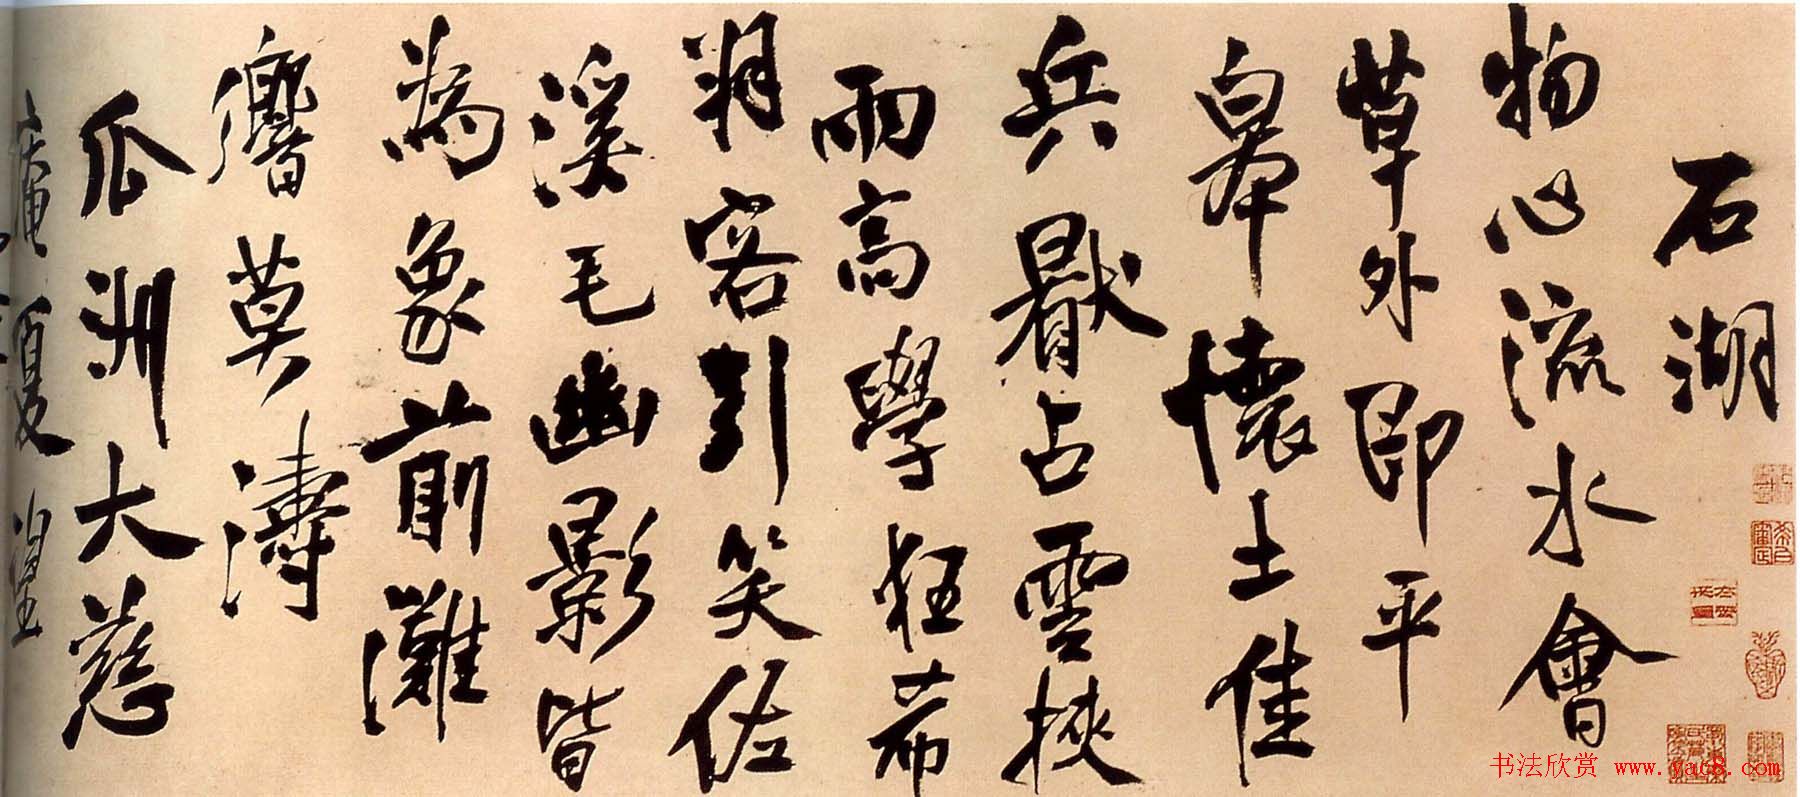 石湖
物心流水會
草外即平
皋懷土佳
兵猒占雲挾
雨高學狂希
朔客引笑佐
溪毛幽影皆
為象前灘
響莫濤
瓜洲大慈
书法欣赏 www.yac8.com